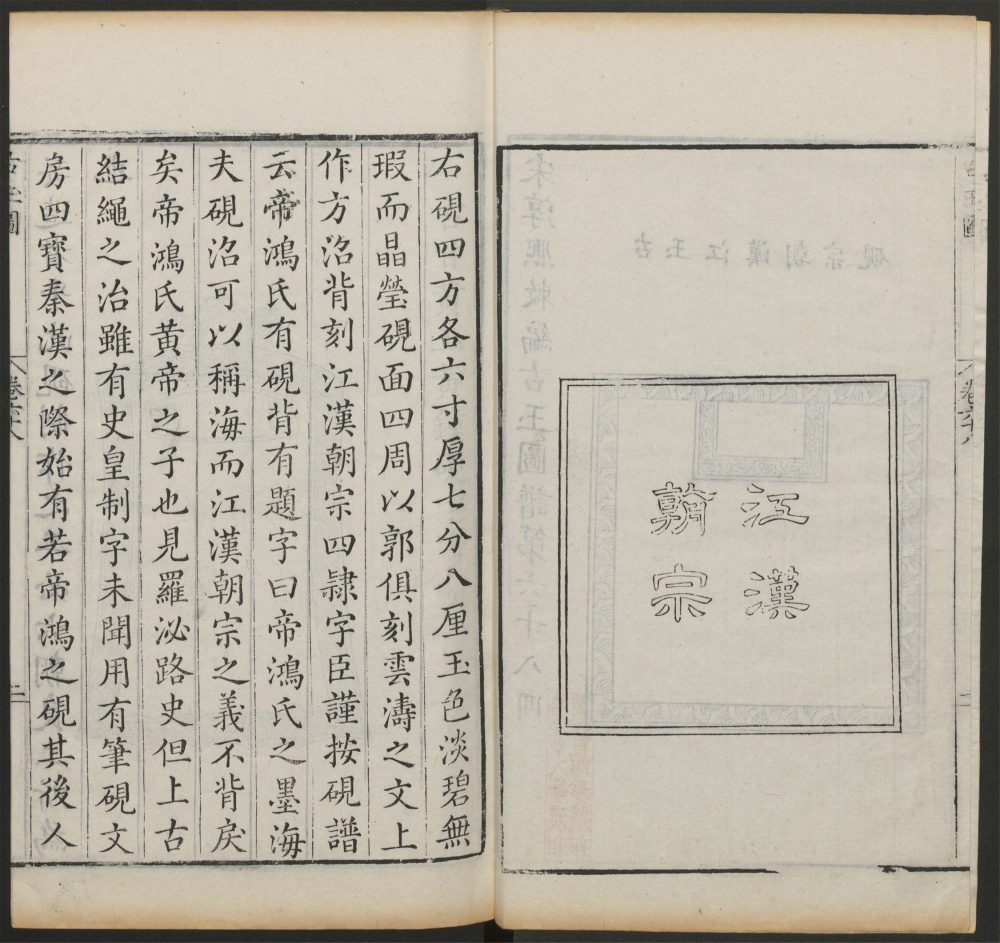 江漢
朝宗
右硯四方各六寸厚七分八厘玉色淡碧無
瑕而晶瑩硯面四周以郭俱刻雲濤之文上
作方沼背刻江漢朝宗四隸字臣謹按硯譜
云帝鴻氏有硯背有題字曰帝鴻氏之墨海
夫硯沼可以稱海而江漢朝宗之義不背戾
矣帝鴻氏黃帝之子也見羅泌路史但上古
結繩之治雖有史皇制字未聞用有筆硯文
房四寶秦漢之際始有若帝鴻之硯其後人
古玉圖 卷六十八 二